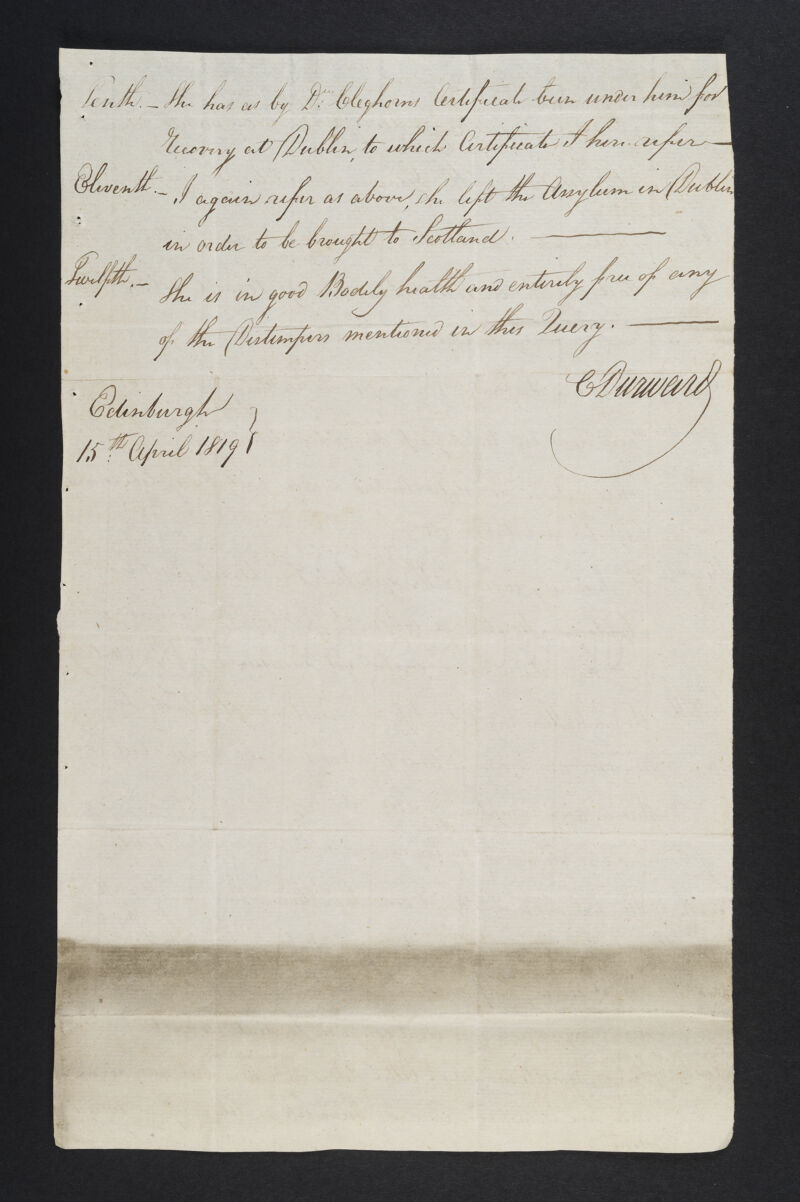 Tenth. – She has as by Dr. Cleghorns Certificate been under him for
recovery at Dublin, to which Certificate I here refer —
Eleventh. – I again refer as above, she left the Assylum in Dublin
in order to be brought to Scotland. —
Twelfth. – She is in good Bodily health and entirely free of any
of the Distempers mentioned in this Query. —
C Durward
Edinburgh
15th April 1819